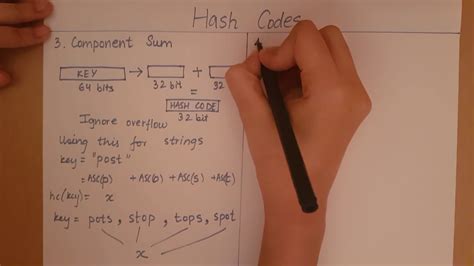 Hash Codes
3. Component Sum
KEY → +
64 bits 32 bit 32
=
HASH CODE
32 bit
Ignore overflow
Using this for strings
key = "post"
= ASC(p) + ASC(o) + ASC(s) + ASC(t)
hc(key) = x
key = pots, stop, tops, spot
x